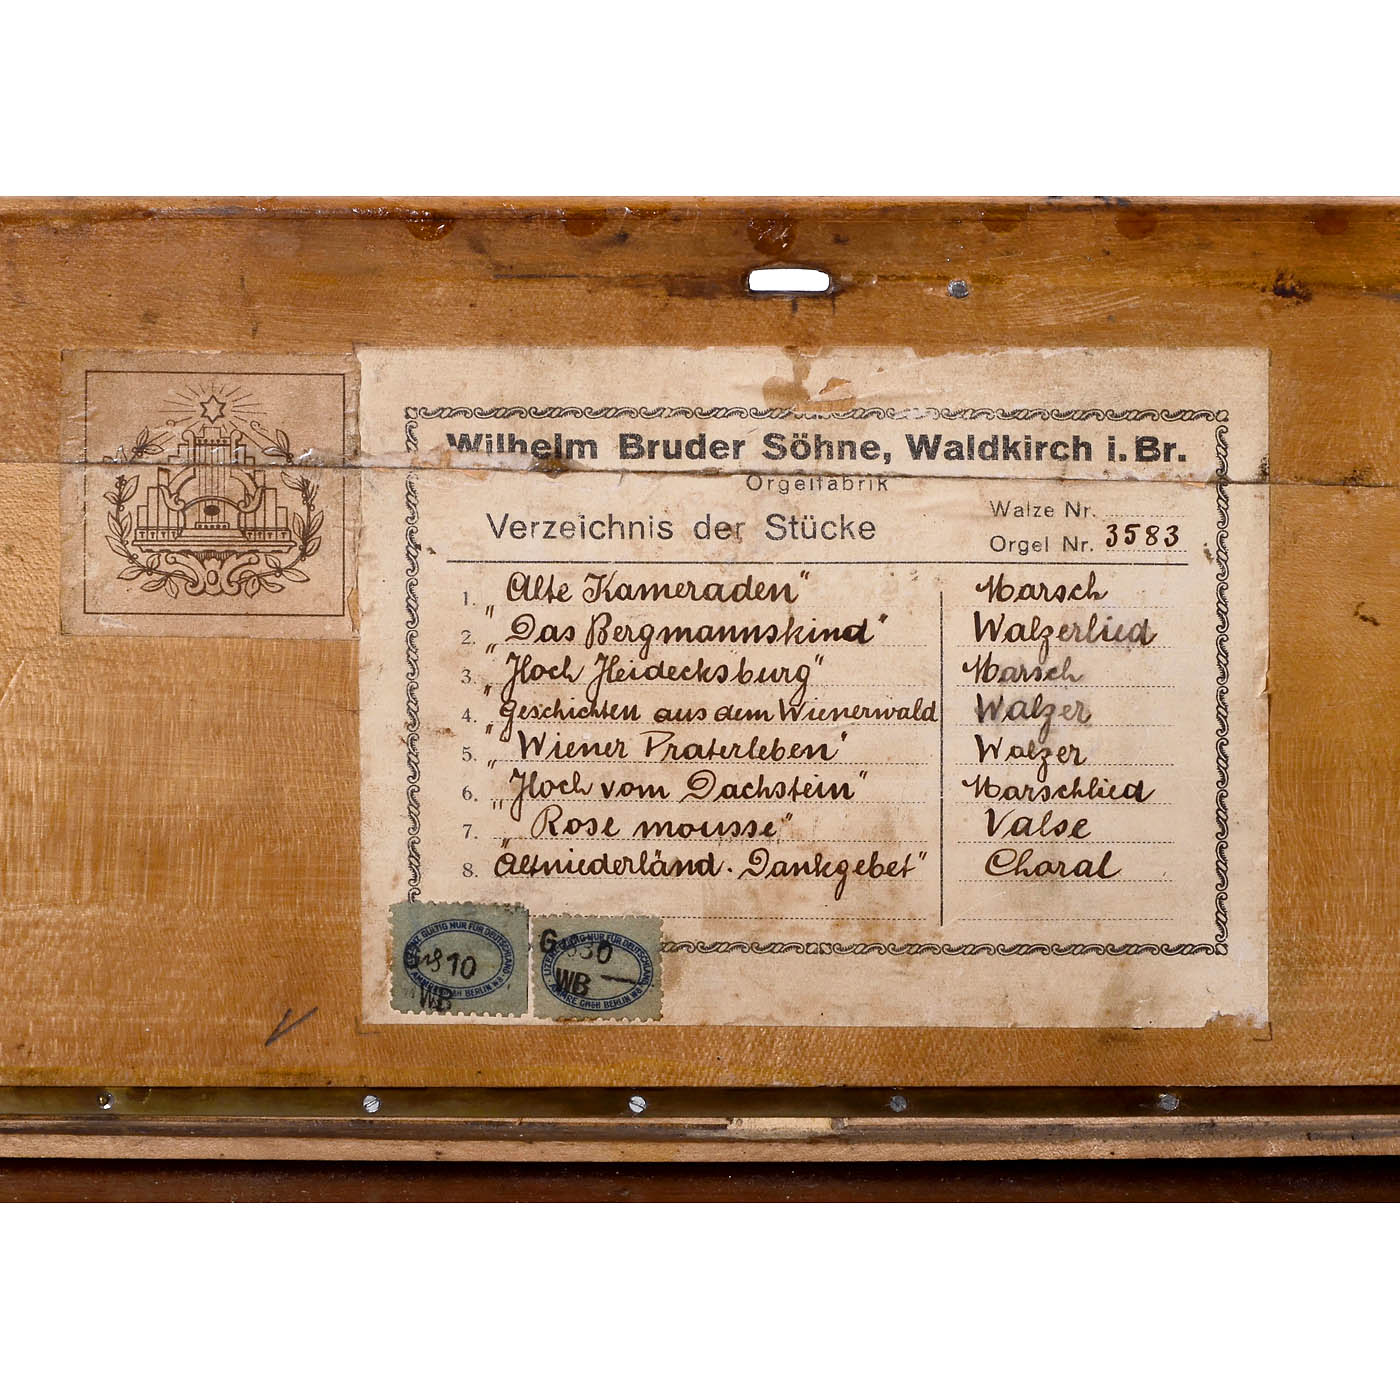 Wilhelm Bruder Söhne, Waldkirch i. Br.
Orgelfabrik
Verzeichnis der Stücke
Walze Nr.
Orgel Nr. 3583
1. "Alte Kameraden" Marsch
2. "Das Bergmannskind" Walzerlied
3. "Hoch Heidecksburg" Marsch
4. "Geschichten aus dem Wienerwald Walzer
5. "Wiener Praterleben" Walzer
6. "Hoch vom Dachstein" Marschlied
7. "Rose mousse" Valse
8. "Altniederländ. Dankgebet" Choral
GÜLTIG NUR FÜR DEUTSCHLAND
10
WB
BERLIN W8
NUR FÜR DEUTSCHLAND
30
WB
AMMRE GMBH BERLIN W8